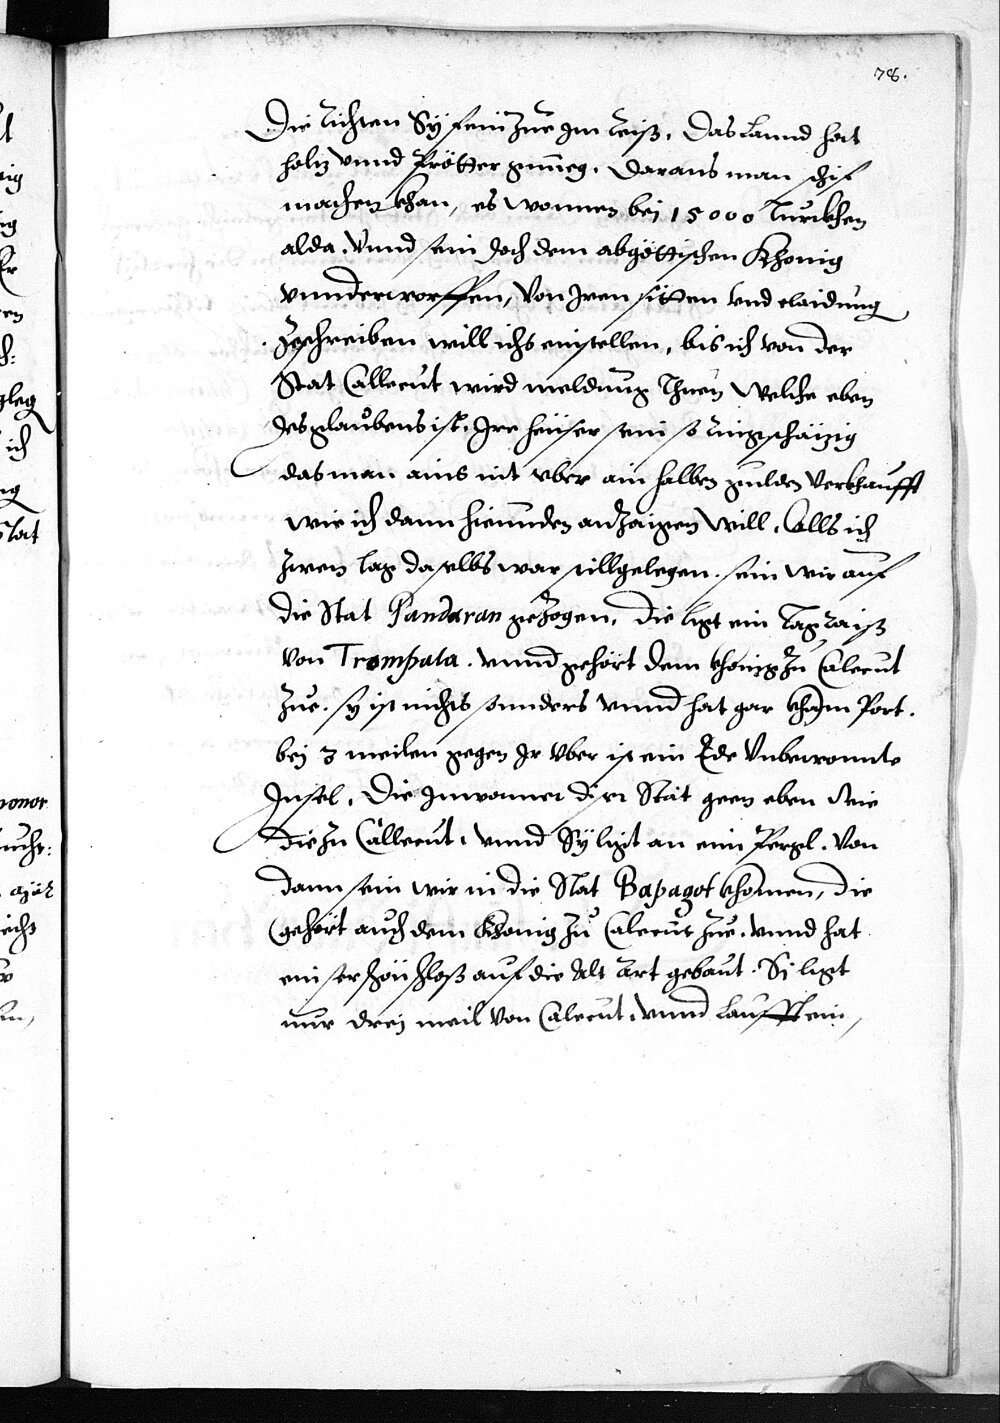 78.
Die Richten Sy fein zue Im Reiß. Das Lannd hat
holtz vnnd Prötter gnueg. Daraus man schif
machen khan, es wonnen bei 15000 Turckhen
alda. Vnnd sein doch dem abgöttischen Khonig
vnnderworffen, Von Iren sitten vnd claidung
Zeschreiben will ichs einstellen, bis ich von der
Stat Callecut wird meldung thuen Welche eben
des glaubens ist. Ire heuser sein so ringschäzig
das man ains nit vber ain halben gulden Verkhaufft
wie ich dann hieunden anzaigen Will. Alls ich
zwen tag daselbs war stillgelegen. sein wir auf
die Stat Pandaran gezogen, die ligt ein tag raiß
Von Trompata. vnnd gehört dem khönig zu Calecut
zue. sy ist nichts sonnders vnnd hat gar khain Port.
bei 3 meilen gegen Ir vber ist ein Ede Vnbewonnte
Insel. Die Inwoner diser Stat geen eben wie
die zu Callecut. vnnd Sy ligt an eim Pergl. Von
dann sein wir in die Stat Bapagot khomen, die
gehört auch dem Khonig zu Calecut zue. vnnd hat
ein ser schön schloß auf die Alt Art gebaut. Si ligt
nur drej meil Von Calecut. vnnd laufft ein,
honor
ich
Stat